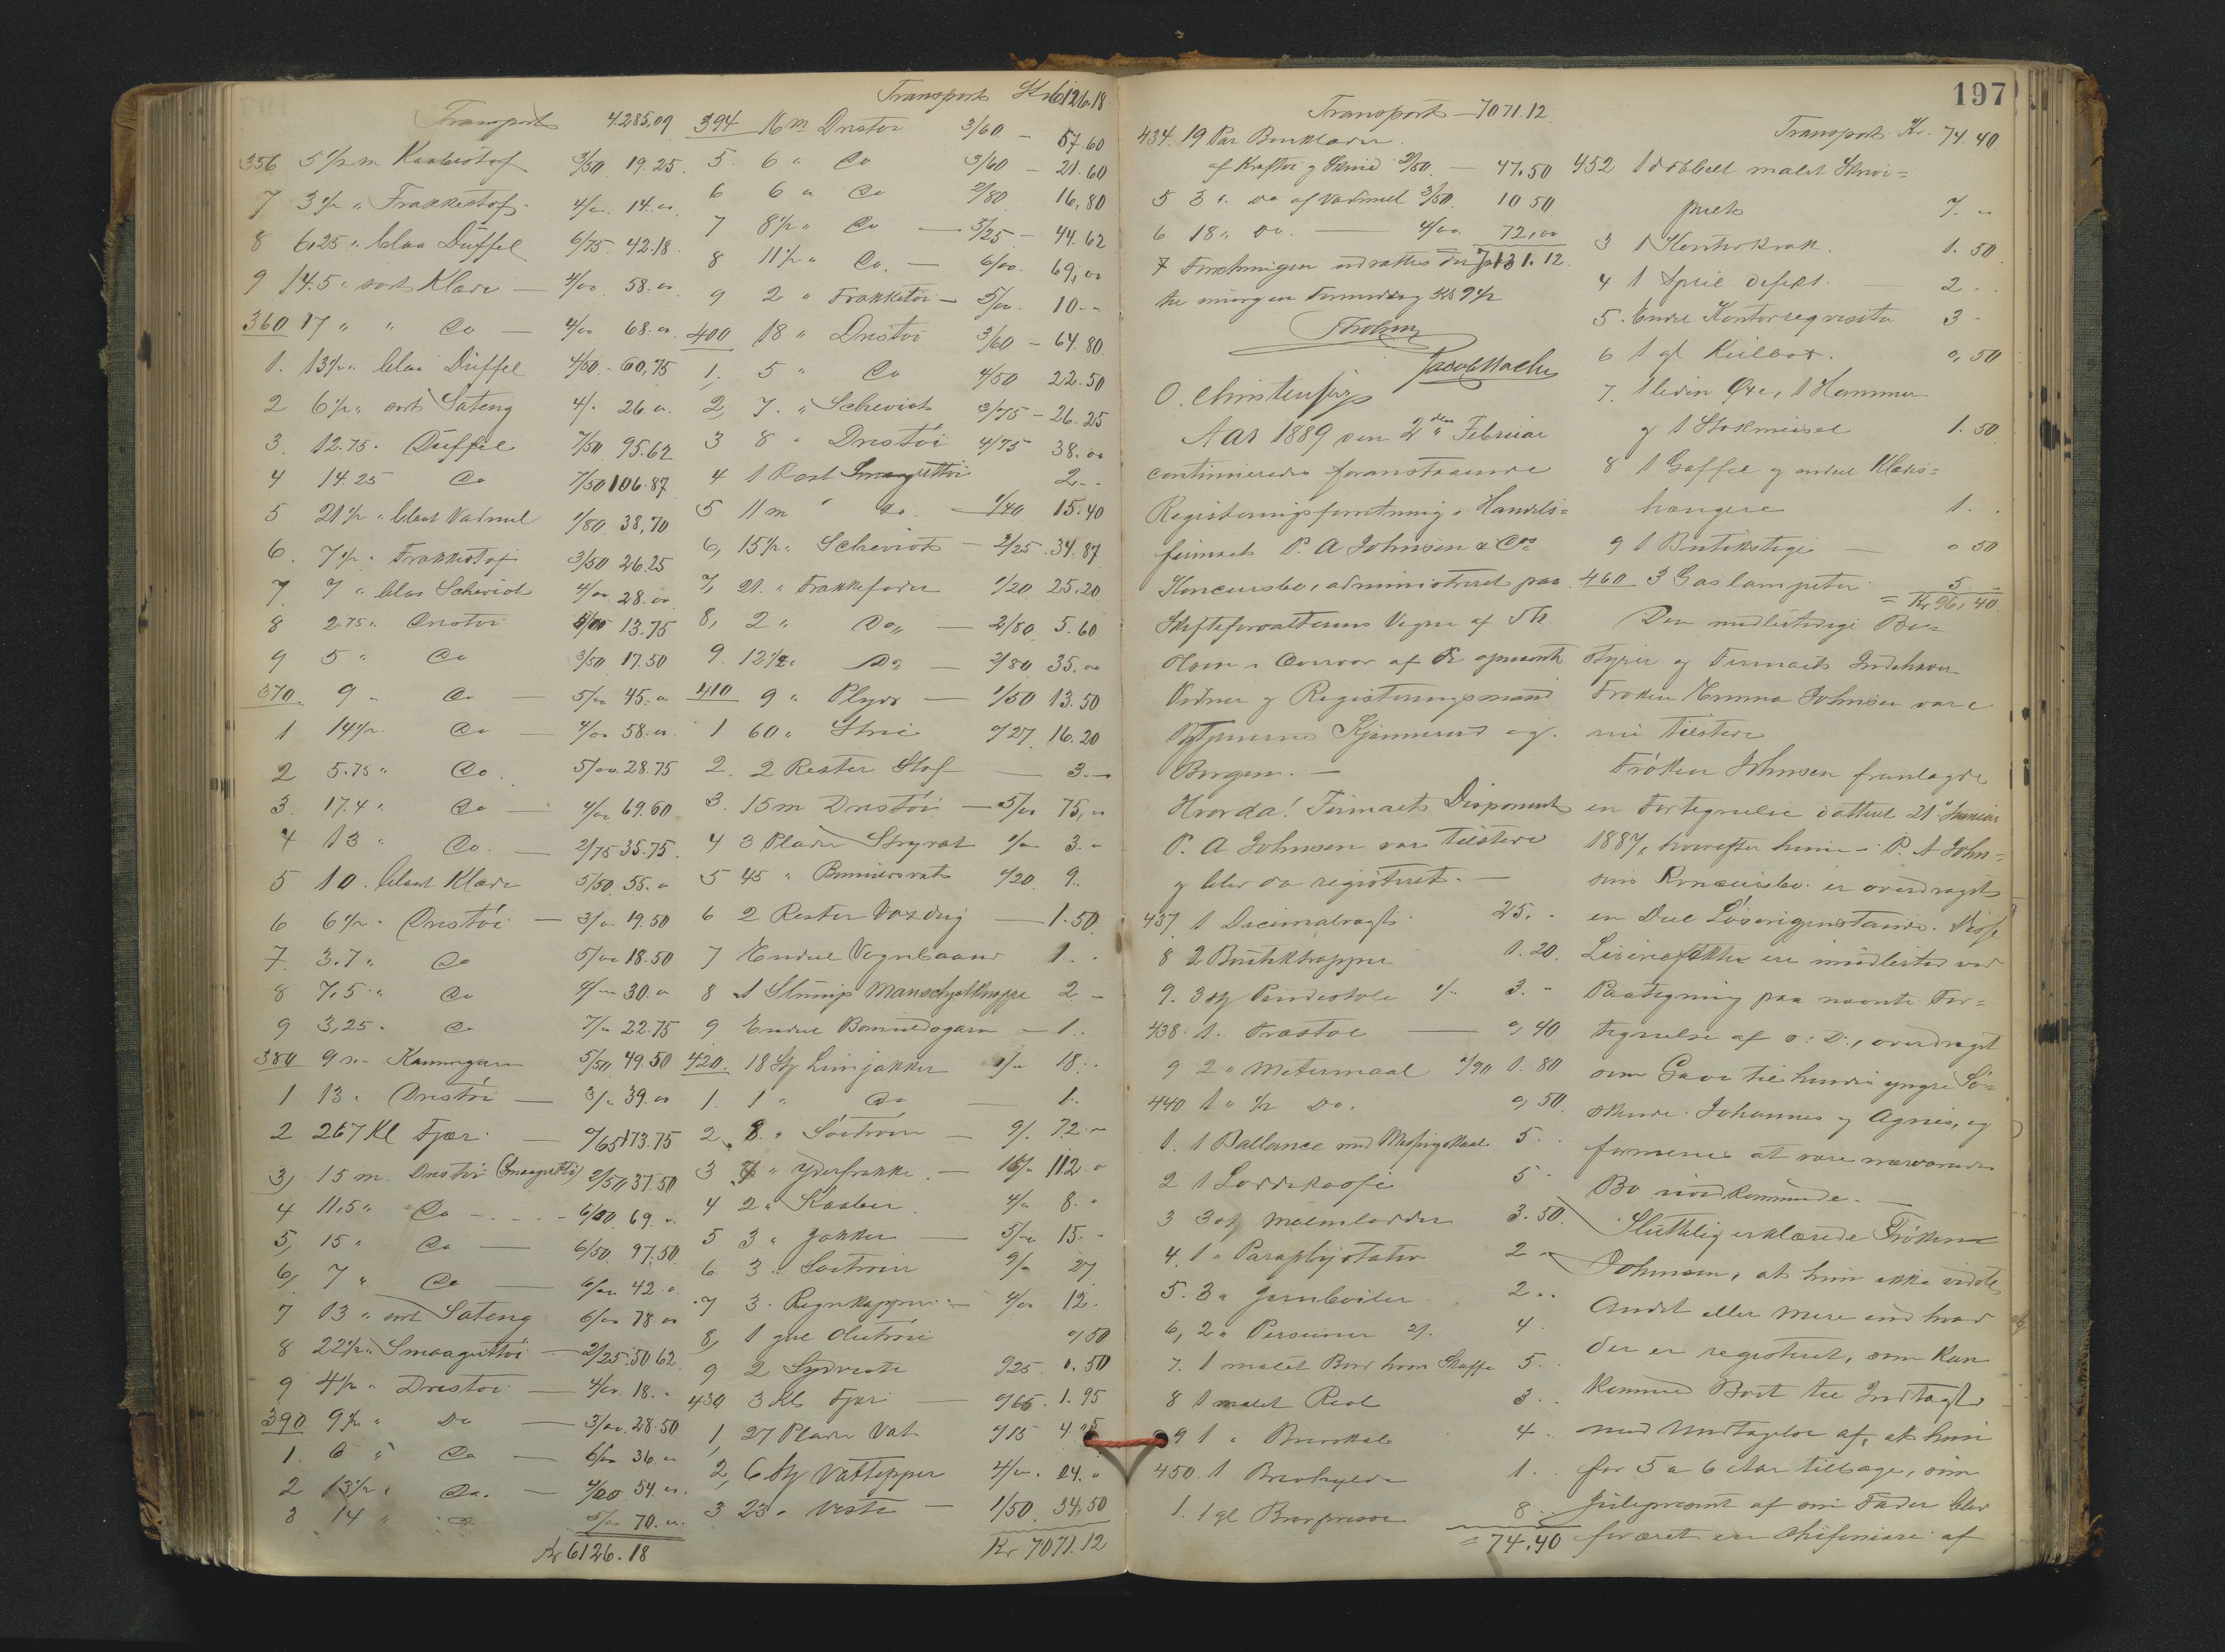 Transport 4285,09
356 5 1/2 m Kaabestof 3/50 19.25
7 3 1/2 " Frakkestof 4/00 14.00
8 6,25 " blaa Düffel 6/75 42.18
9 14.5 " sort Klæde — 4/00 58.00
360 17 " " Do — 4/00 68.00
1. 13 1/2 " blaa Düffel 4/50 - 60,75
2 6 1/2 " sort Sateng 4/. 26.00
3. 12.75 " Düffel 7/50 95.62
4 14.25 Do 7/50 106.87
5 21 1/2 " blaat Vadmel 1/80 38,70
6. 7 1/2 " Frakkestof 3/50 26.25
7. 7 " blaa Scheviot 4/00 28.00
8 2.75 " Drestöi 5/00 13.75
9 5 " Do 3/50 17.50
370 9 " Do — 5/00 45.00
1 14 1/2 Do — 4/00 58.00
2 5.75 " Do 5/00 28.75
3. 17.4 " Do — 4/00 69.60
4 13 " Do. — 2/75 35.75
5 10 " blaat Klæde 5/50 55.00
6 6 1/2 " Drestöi — 3/00 19.50
7. 3.7 " Do 5/00 18.50
8 7,5 " Do 4/00 30.00
9 3,25 " Do 7/00 22.75
380 9 m Kamgarn 5/50 49.50
1 13 " Drestöi — 3/00 39.00
2 267 Kl Fjær — 0/65 173.75
3, 15 m. Drestöi (Smaaguttöi) 2/50 37.50
4 11,5 " Do - - - 6/00 69.00
5, 15 " Do — 6/50 97.50
6, 7 " Do — 6/00 42.00
7 13 " sort Sateng 6/00 78.00
8 22 1/2 " Smaaguttöi — 2/25 50.62
9 4 1/2 " Drestöi — 4/00 18.00
390 9 1/2 " Do — 3/00 28.50
1. 6 " Do — 6/00 36.00
2 13 1/2 " Do. — 4/00 54.00
3 14 " Do 5/00 70.00
Kr 6126.18
Transport Kr 6126.18
394 16 m Drestöi 3/60 — 57.60
5. 6 " Do 3/60 — 21.60
6 6 " Do 2/80 16,80
7 8 1/2 " Do — 5/25 — 44.62
8 11 1/2 " Do. — 6/00. 69,00
9 2 " Frakketöi — 5/00. 10 - -
400 18 " Drestöi 3/60 — 64.80
1, 5 " Do 4/50 22.50
2, 7 " Scheviot 3/75 — 26.25
3 8 " Drestöi 4/75 38.00
4 1 Rest Smaaguttöi 2 - -
5 11 m " do. — 1/40 15.40
6, 15 1/2 " Scheviot — 2/25 34.87
7, 21 " Frakkefoder 1/20 25.20
8, 2 " Do " — 2/80 5.60
9. 12 1/2 " Do — 2/80 35.00
410 9 " Plyds — 1/50 13.50
1 60 " Strie 0/27 16.20
2. 2 Rester Stof — 3. —
3. 15 m Drestöi — 5/00 75,00
4 3 Plader Stryvat 1/00 3. -
5 45 " Bomuldsvat 0/20 9. -
6 2 Rester Voxdug — 1.50
7 Endel Vognbaand 1. -
8 1 Slump Manschetknappe 2 -
9 Endel Bomuldsgarn — 1. -
420. 18 St Linjakker 1/00 18. -
1. 1 " Do — 1.
2. 8 " Söströier — 9/. 72. -
3 7 " Yderfrakke — 16/00 112. 0
4 2 " Kaaber 4/00 8. 0
5 3 " Jakker — 5/00 15. -
6 3 " Söströier 9/00 27
7 3 " Regnkapper — 4/00 12.
8, 1 gul Oletröie 0,50
9 2 Sydveste 0/25 0.50
430 3 Kl. Fjær — 0/65. 1.95
1, 27 Plader Vat 0/15 4.25
2, 6 St Vattepper 4/00. 24. 0
3 23 " Veste — 1/50 34,50
Kr 7071.12
Transport — 7071.12
434. 19 Par Benklæder
af Kraftöi & Skind 2/50 — 47.50
5 3 " Do af Vadmel 3/50 10 50
6 18 " Do. — 4/00 72,00
7 Forretningen udsattes der 7131.12
til imorgen Formiddag Kl 9 1/2
O. Christensen
Aar 1889 den 2den Februar
continueredes foranstaaende
Registeringsforretning i Handels=
firmaet P. A Johnsen & Cos
Koncursbo, administreret paa
Skifteforvalterens Vegne af Th.
Olsen i Overvær af de opnævnte
Vidner og Registeringsmænd
Kjennerud og
Borgen. —
Hvorda! Firmaets Disponent
P. A Johnsen var tilstede
og blev da registreret. —
437. 1 Decimalvægt 25. -
8 2 Butiktrapper 1.20
9. 3 st Pindestole 1/. 3. -
438. 1. Træstol — 0,40
9 2 " Metermaal 0/90 1.80
440 1 " 1/2 Do. 0,50
1. 1 Ballance med Messingskaale 5. -
2 1 Loddekasse 5 -
3 3 st Malmlodder 3.50
4. 1 " Paraplystativ 2 -
5. 3 " Jernboiler 2 - -
6, 2 " Persienner 2/. 4.
7. 1 malet Bord hvori Skuffe 5. -
8 1 malet Reol 3. -
9 1 " Brevskab 4 -
450. 1 Brevhylde 1. -
1. 1 gl Brevpresse 8. -
= 74.40
197
Transport Kr. 74.40
452 1 dobbelt malet Skrive=
pult 7. -
3 1 Kontorkrak. 1. 50
4 1 Speil defekt. — 2 - -
5. Endel Kontorreqvisita 3 -
6 1 gl Kulbox. 0,50
7. 1 liden Öxe, 1 Hammer
og 1 Stokmeisel 1. 50
8 1 Gaffel og endel Klæds=
hængere 1. -
9 1 Butikstige — 0 50
460 3 Gaslampetter 5 -
= Kr 96,40
Den midlertidige Be=
styrer og Firmaets Indehaver
Fröken Emma Johnsen vare
nu tilstede
Fröken Johnsen fremlagde
en Fortegnelse datteret 21de Januar
1887, hvorefter hun i P. A John=
sens Koncursbo er overdraget
en Deel Lösöregjenstande. Disse
Lösöreffekter ere imidlertid ved
Paategning paa nævnte For=
tegnelse af s: D:, overdraget
som Gave til hendes yngre Sö=
skende Johannes og Agnes, og
formenes at være nærværende
Bo uvedkommende. —
Sluttelig erklærede Fröken
Johnsen, at hun ikke vidste
Andet eller mere end hvad
der er registeret, som kan
komme Boet til Indtægt
med Undtagelse af, at hun
for 5 a 6 Aar tilbage, som
Julepresent af sin Fader blev
foræret en Chifoniere af